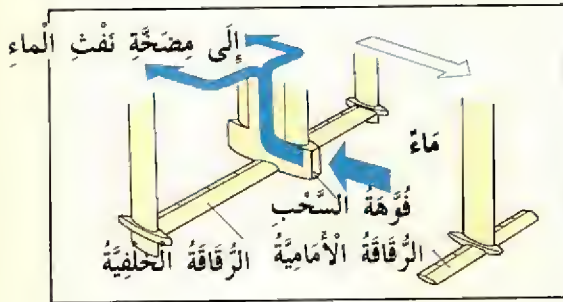 إِلَى مِضَخَّةِ نَفْثِ الْماءِ
مَاءٌ
فُوَّهَةُ السَّحْبِ
الرُّقَاقَةُ الْأَمَامِيَّةُ
الرُّقَاقَةُ الخَلفِيَّةُ